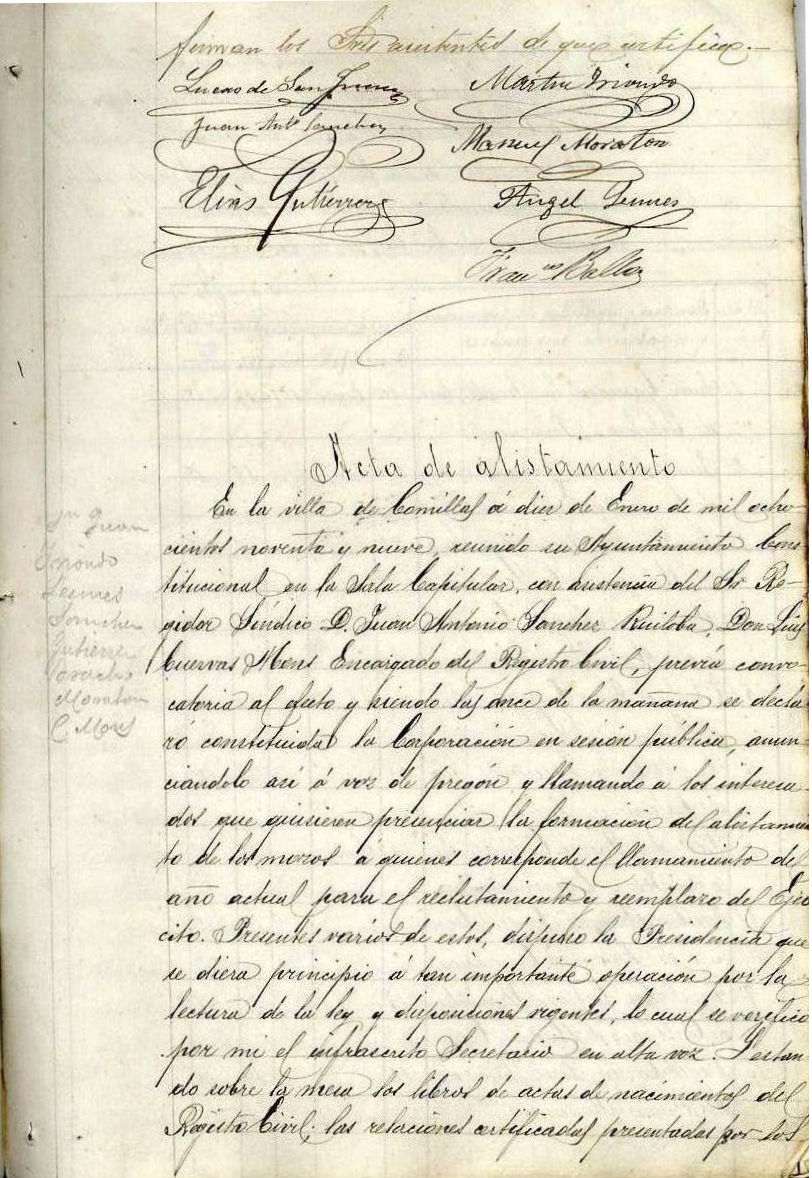 firman los Sres asistentes de que certifico.—
Lucas de San Juan Martin Iriondo
Juan Anto Sanchez
Manuel Moraton
Elias Gutiérrez Angel Lemes
Franco Balboa
Acta de alistamiento
En la villa de Comillas á diez de Enero de mil ocho-
cientos noventa y nueve, reunido su Ayuntamiento Cons-
titucional en la Sala Capitular, con asistencia del Sr Re-
gidor Síndico D. Juan Antonio Sanchez Ruiloba, Don Luis
Cuervas Mons Encargado del Registro Civil, prévia convo-
catoria al efecto y siendo las once de la mañana se decla
ró constituida la Corporación en sesión pública, anun-
ciandolo así á voz de pregón y llamando á los interesa-
dos que quisieren presenciar la formación del alistamien
to de los mozos á quienes corresponde el llamamiento del
año actual para el reclutamiento y reemplazo del Ejér
cito. Presentes varios de estos, dispuso la Presidencia que
se diera principio á tan importante operación por la
lectura de la ley y disposiciones vigentes, lo cual se verificó
por mi el infrascrito Secretario en alta voz. Y estan
do sobre la mesa los libros de actas de nacimientos del
Registro Civil; las relaciones certificadas presentadas por los
Sn Juan
Iriondo
Lemes
Sanchez
Gutierrez
Moraton
C. Mons